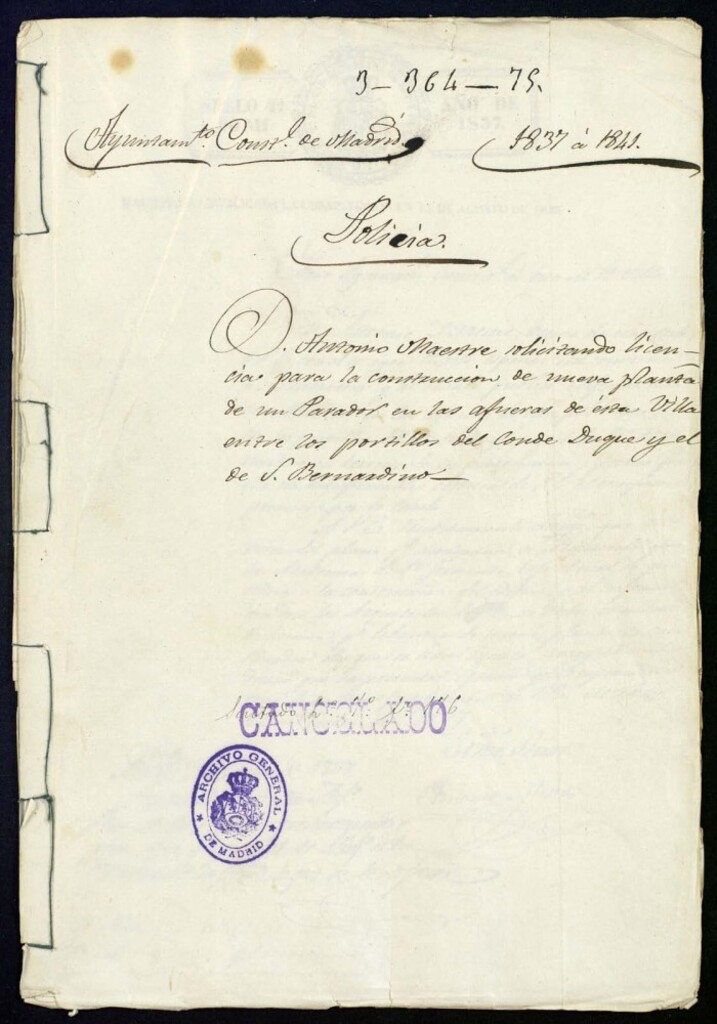 3 - 364 - 75.
Ayuntamto. Constl. de Madrid, 1837 á 1841.
Policia.
D. Antonio Maestre solicitando licen-
cia para la construccion de nueva planta
de un Parador en las afueras de ésta Villa
entre los portillos del Conde Duque y el
de S. Bernardino—
CANCELADO
ARCHIVO GENERAL
DE MADRID